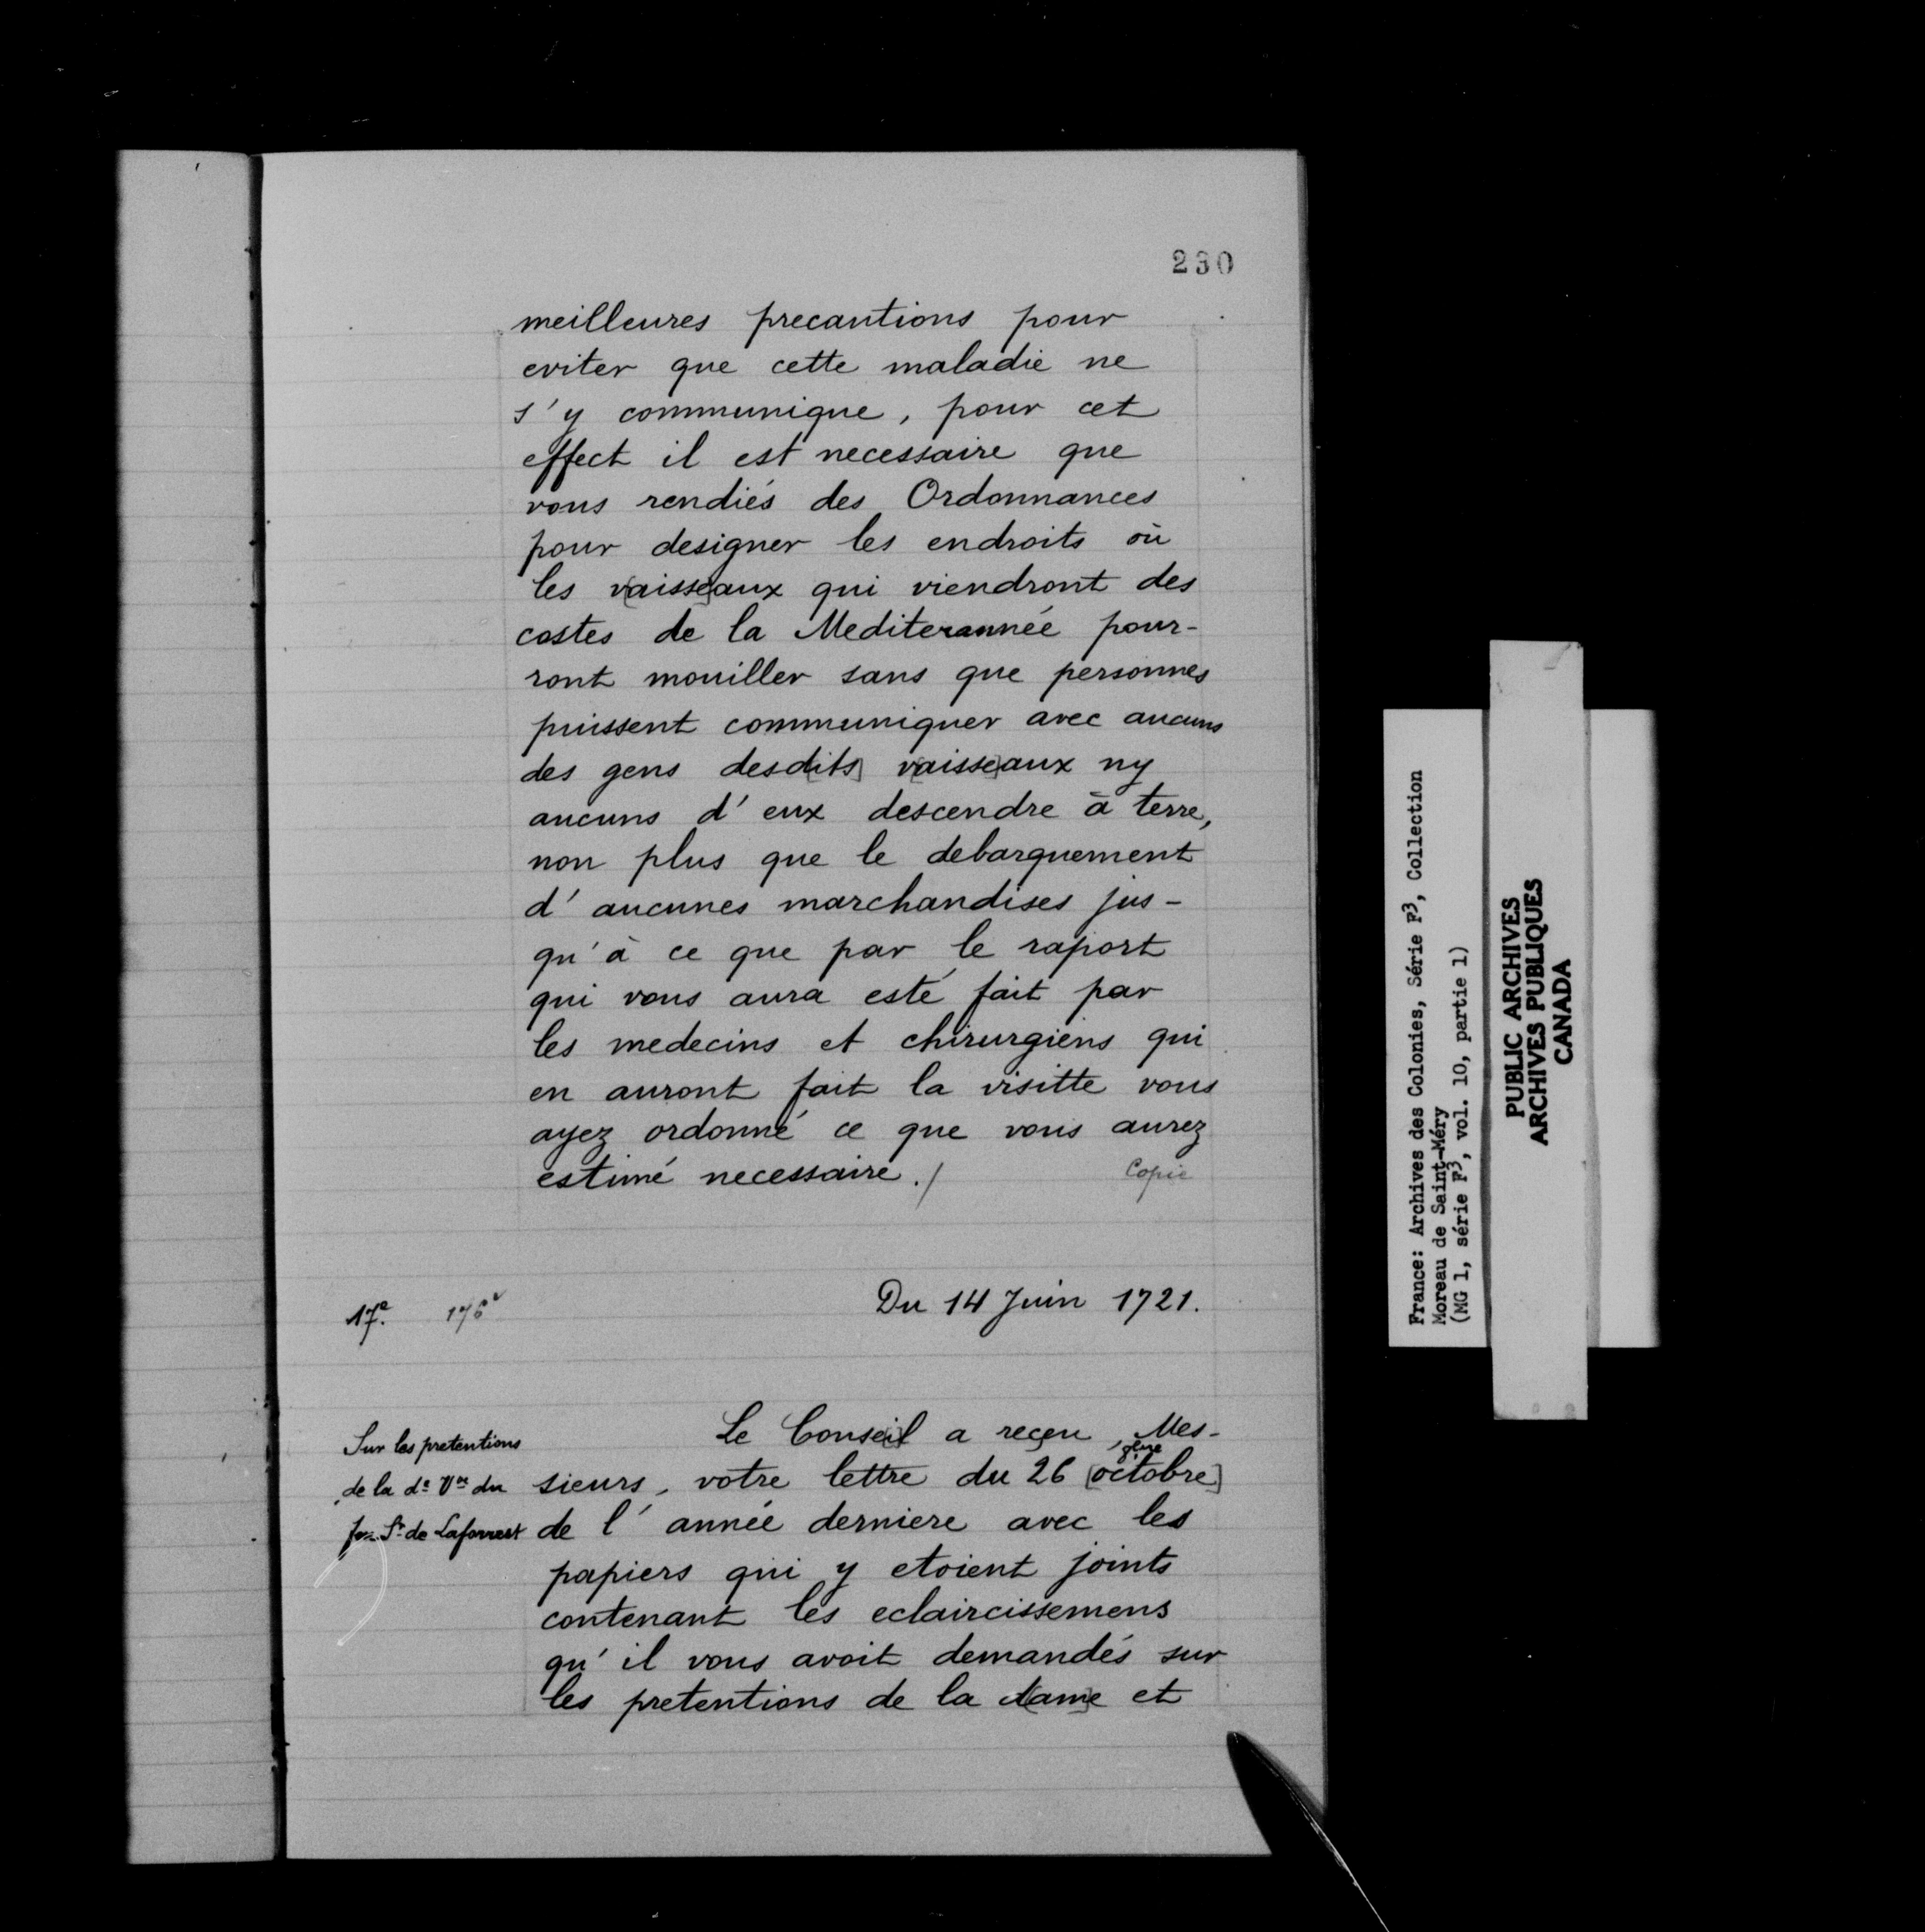 230
meilleures precautions pour
eviter que cette maladie ne
s'y communique, pour cet
effect il est necessaire que
vous rendiés des Ordonnances
pour designer les endroits où
les v[aisse]aux qui viendront des
costes de la Mediterannée pour-
ront mouiller sans que personnes
puissent communiquer avec aucuns
des gens desd[its] v[aisse]aux ny
aucuns d'eux descendre à terre,
non plus que le debarquement
d'aucunes marchandises jus-
qu'à ce que par le raport
qui vous aura esté fait par
les medecins et chirurgiens qui
en auront fait la visitte vous
ayez ordonné ce que vous aurez
estimé necessaire./
Copie
17e.
Du 14 Juin 1721.
Sur les pretentions
de la de. Vve du
Sr. de Laforrest
Le Conse[i]l a reçeu, Mes-
sieurs, votre lettre du 26 [octobre]
de l'année derniere avec les
papiers qui y etoient joints
contenant les eclaircissemens
qu'il vous avoit demandés sur
les pretentions de la d[am]e et
France: Archives des Colonies, Série F3, Collection
Moreau de Saint-Méry
(MG 1, série F3, vol. 10, partie 1)
PUBLIC ARCHIVES
ARCHIVES PUBLIQUES
CANADA